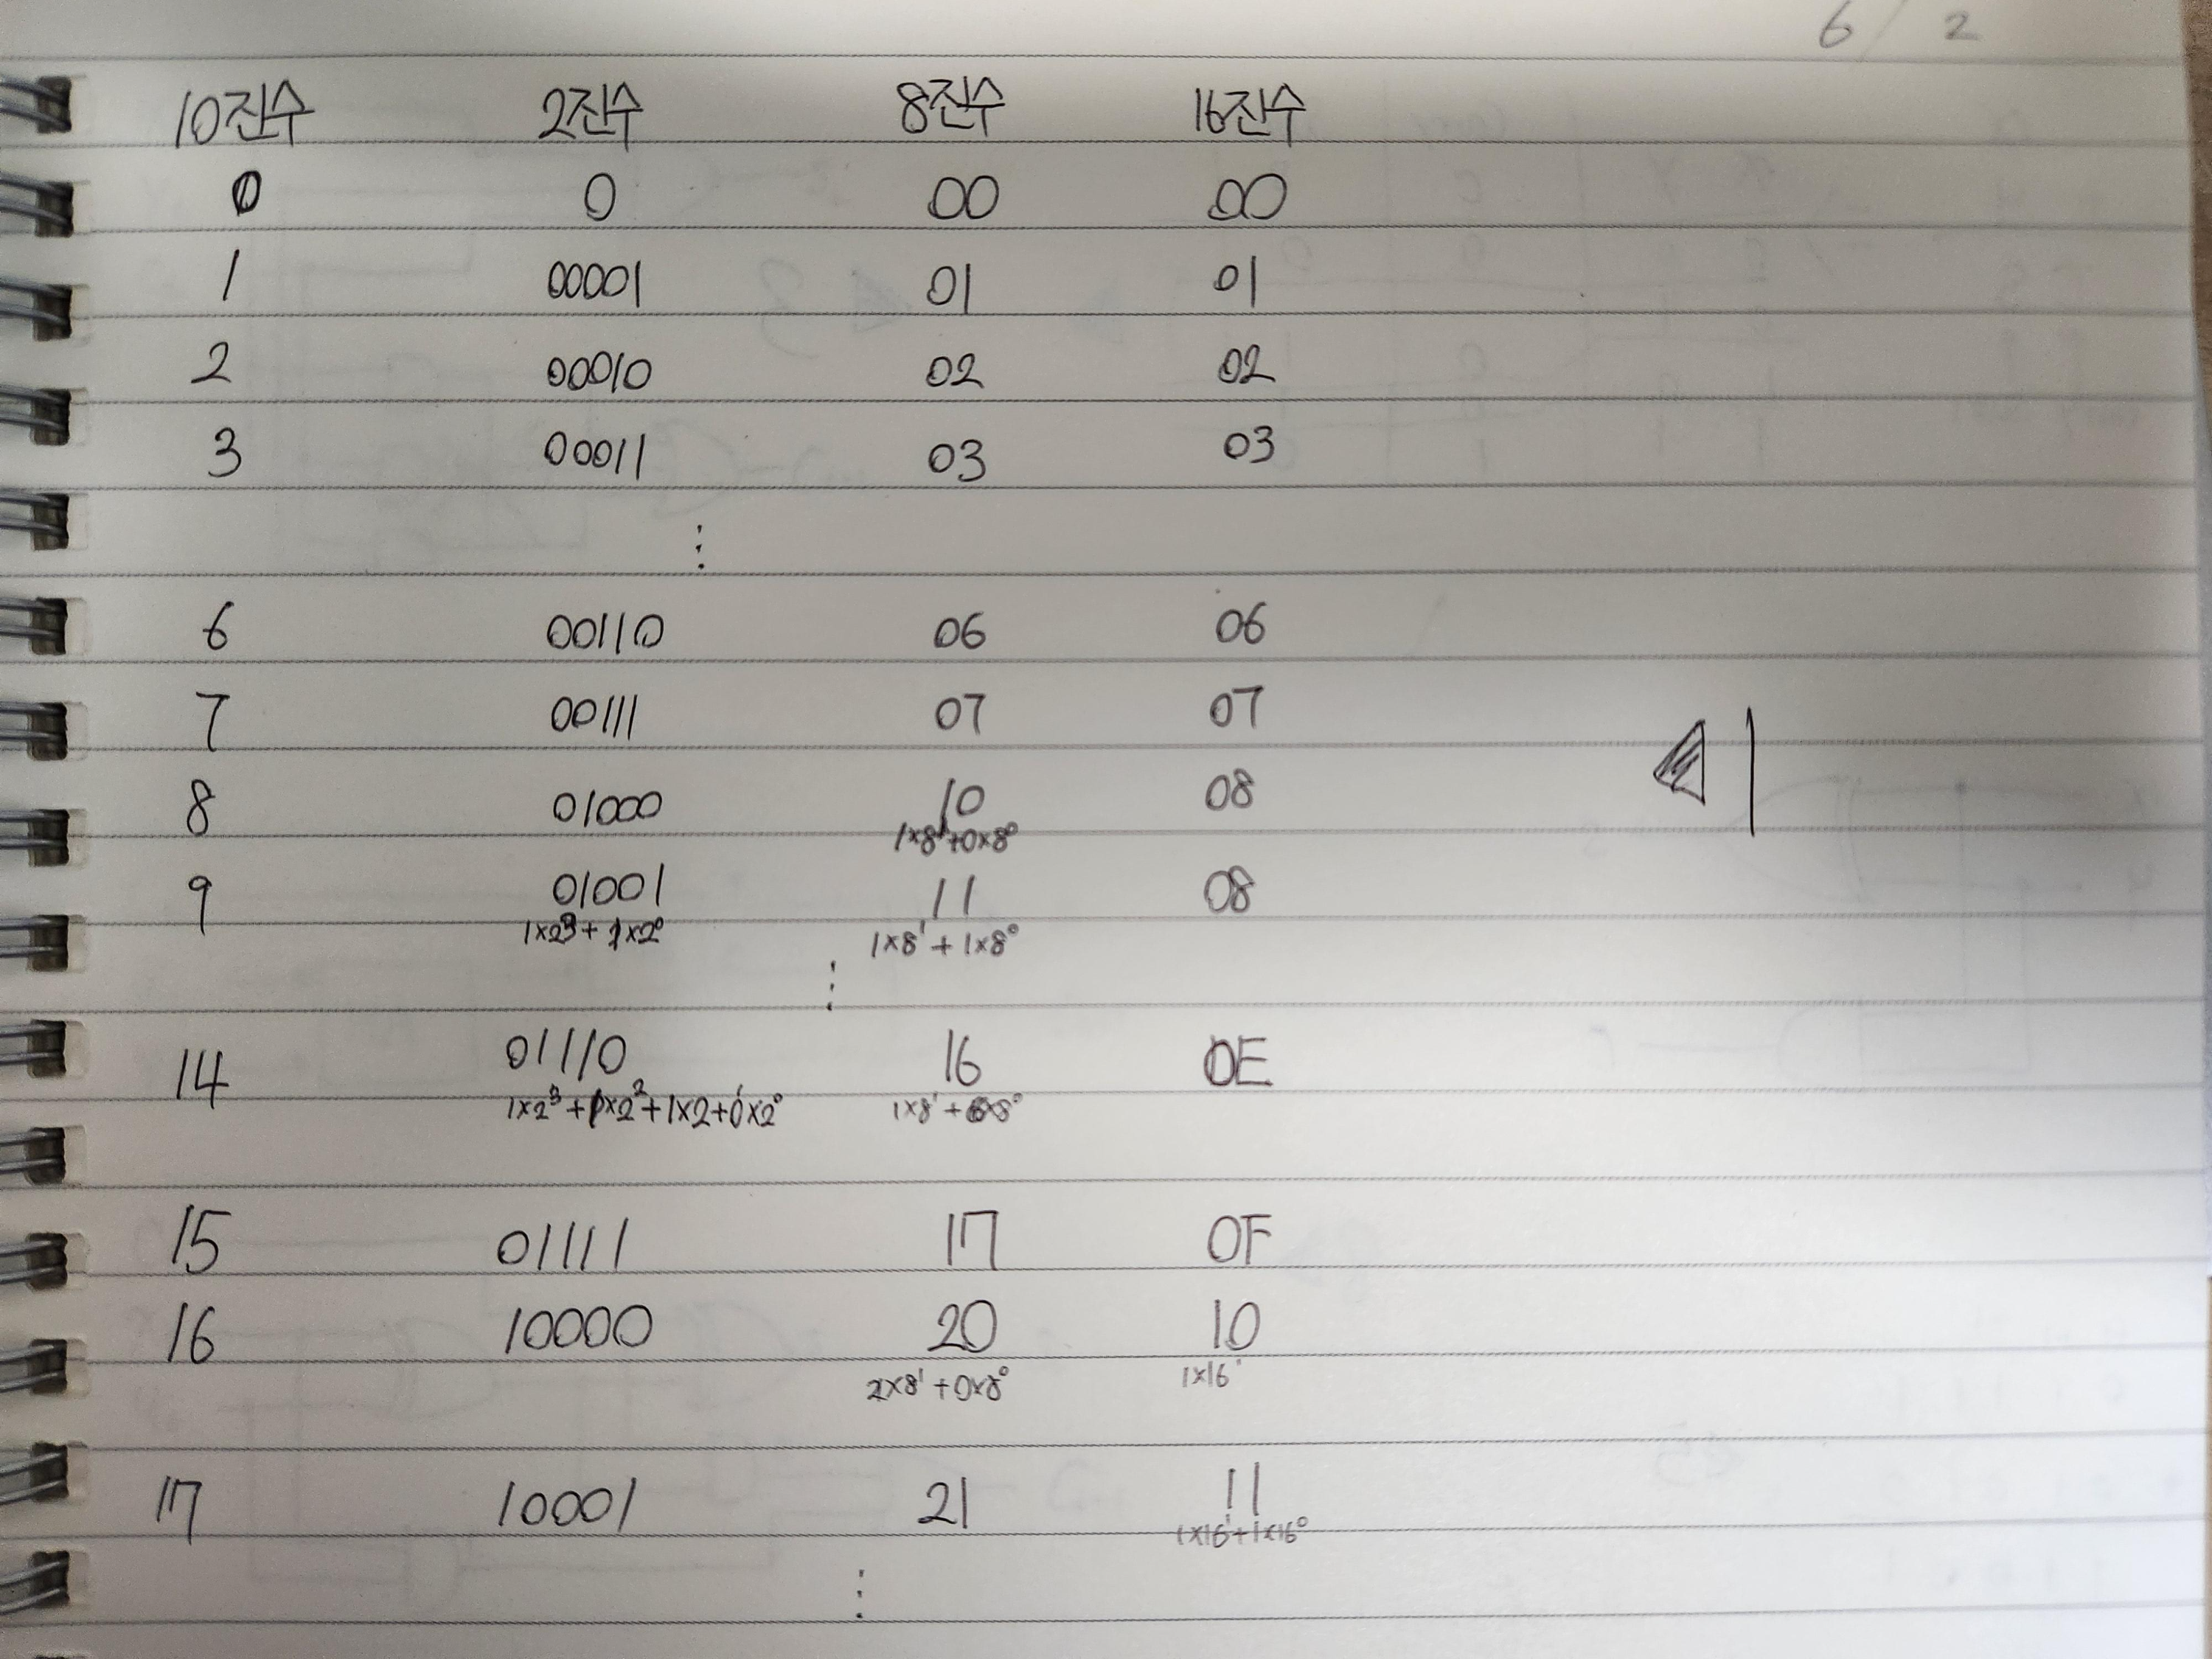 6/2
10진수 2진수 8진수 16진수
0 0 00 00
1 00001 01 01
2 00010 02 02
3 00011 03 03
⋮
6 00110 06 06
7 00111 07 07
8 01000 10 08
1×8¹+0×8⁰
9 01001 11 08
1×2³+1×2⁰ 1×8¹+1×8⁰
⋮
14 01110 16 0E
1×2³+1×2²+1×2¹+0×2⁰ 1×8¹+6×8⁰
15 01111 17 0F
16 10000 20 10
2×8¹+0×8⁰ 1×16¹
17 10001 21 11
1×16¹+1×16⁰
⋮